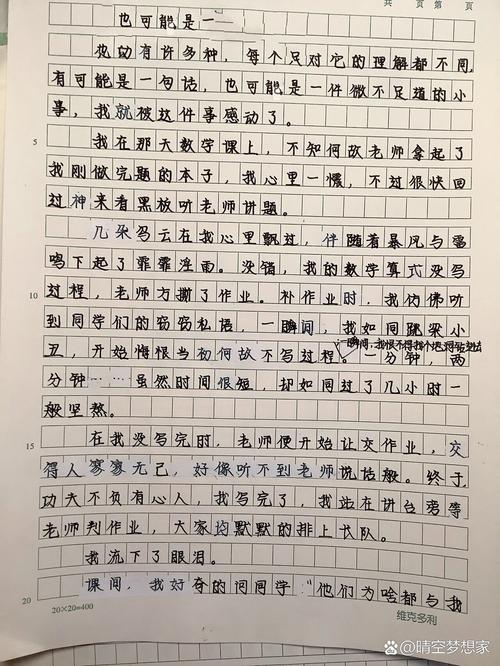 共 页 第 页
也可能是一
感动有许多种,每个人对它的理解都不同,
有可能是一句话,也可能是一件微不足道的小
事,我就被这件事感动了。
5 我在那天数学课上,不知何故老师拿起了
我刚做完题的本子,我心里一慌,不过很快回
过神来看黑板听老师讲题。
几朵乌云在我心里飘过,伴随着暴风与雷
鸣下起了霏霏淫雨。没错,我的数学算式没写
10 过程,老师方撕了作业。补作业时,我仿佛听
到同学们的窃窃私语,一瞬间,我如同跳梁小
一瞬间,我恨不得找个地
丑,开始悔恨当初何故不写过程。一分钟,两
分钟……虽然时间很短,却如同过了几小时一
般坚熬。
15 在我没写完时,老师便开始让交作业,交
得人寥寥无己,好像听不到老师说话般。终于,
功夫不负有心人,我写完了,我站在讲台旁等
老师判作业,大家均默默的排上长队。
我流下了眼泪。
课间,我好奇的问同学:“他们为啥都与我
20 20×20=400 维克多利
Bai百度 @晴空梦想家